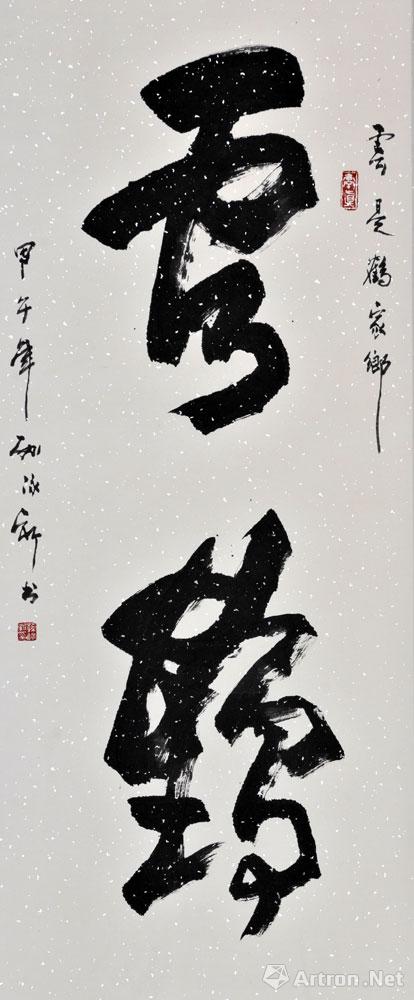 雲是鶴家鄉
雲鶴
甲午年
书
Artron.Net